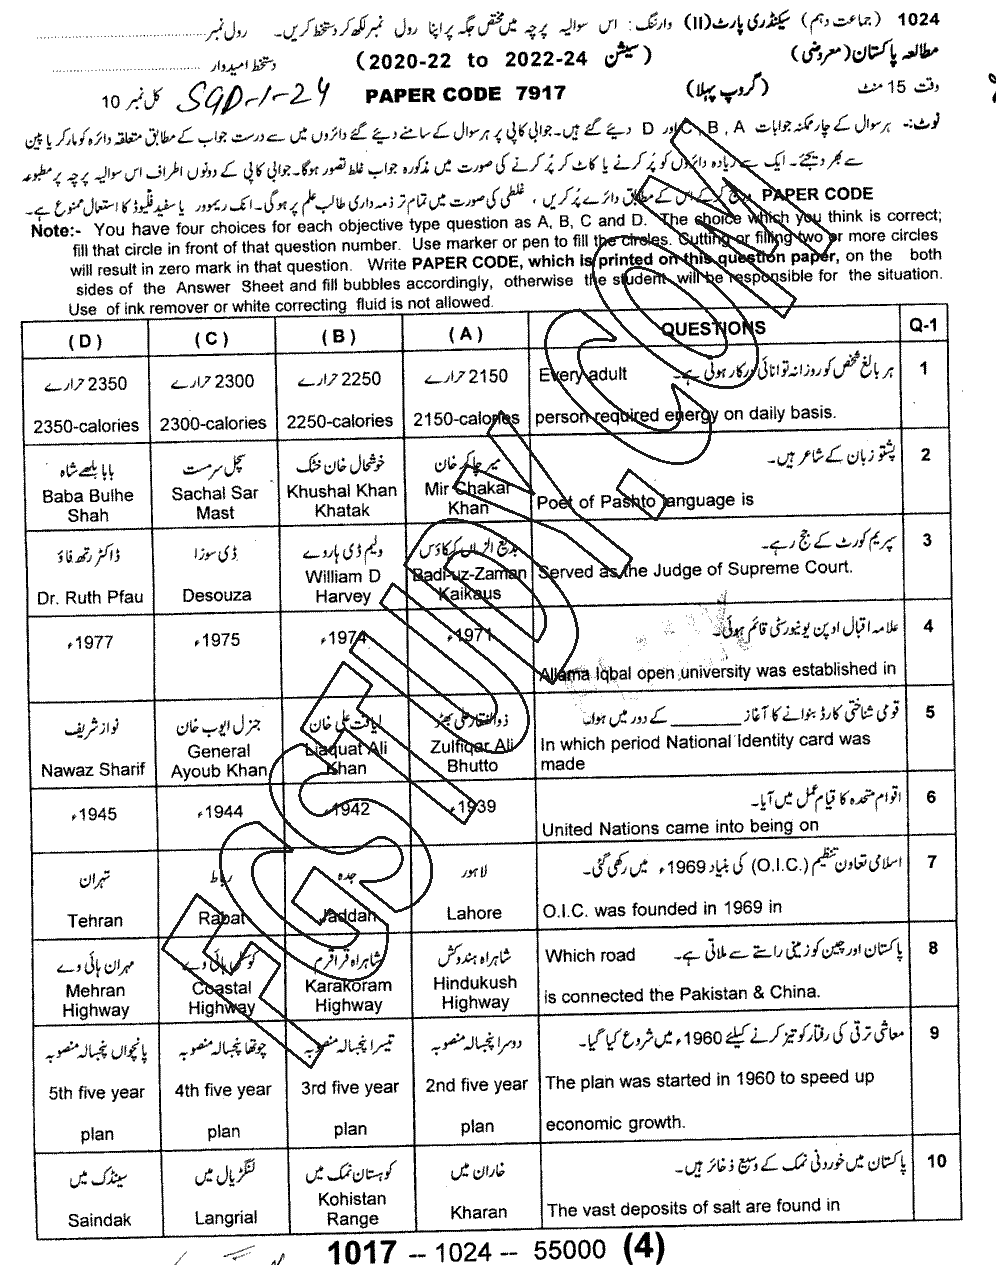 1024 (جماعت دہم) سیکنڈری پارٹ(II) وارننگ: اس سوالیہ پرچہ میں مختص جگہ پر اپنا رول نمبر لکھ کر دستخط کریں۔ رول نمبر
مطالعہ پاکستان (معروضی) (سیشن 2020-22 to 2022-24) دستخط امیدوار
وقت 15 منٹ (گروپ پہلا) PAPER CODE 7917 SGD-1-24 کل نمبر 10
نوٹ:- ہر سوال کے چار ممکنہ جوابات A , B , C اور D دیئے گئے ہیں۔ جوابی کاپی پر ہر سوال کے سامنے دیئے گئے دائروں میں سے درست جواب کے مطابق متعلقہ دائرہ کو مارکر یا پین
سے بھر دیجئے۔ ایک سے زیادہ دائروں کو پُر کرنے یا کاٹ کر پُر کرنے کی صورت میں مذکورہ جواب غلط تصور ہوگا۔ جوابی کاپی کے دونوں اطراف اس سوالیہ پرچہ پر مطبوعہ
PAPER CODE درج کر کے اس کے مطابق دائرے پُر کریں، غلطی کی صورت میں تمام تر ذمہ داری طالب علم پر ہوگی۔ انک ریموور یا سفید فلیوڈ کا استعمال ممنوع ہے۔
Note:- You have four choices for each objective type question as A, B, C and D. The choice which you think is correct;
fill that circle in front of that question number. Use marker or pen to fill the circles. Cutting or filling two or more circles
will result in zero mark in that question. Write PAPER CODE, which is printed on this question paper, on the both
sides of the Answer Sheet and fill bubbles accordingly, otherwise the student will be responsible for the situation.
Use of ink remover or white correcting fluid is not allowed.
(D) (C) (B) (A) QUESTIONS Q-1
2350 حرارے 2300 حرارے 2250 حرارے 2150 حرارے Every adult ہر بالغ شخص کو روزانہ توانائی درکار ہوتی ہے۔ 1
2350-calories 2300-calories 2250-calories 2150-calories person required energy on daily basis.
بابا بلھے شاہ سچل سرمست خوشحال خان خٹک میر چاکر خان پشتو زبان کے شاعر ہیں۔ 2
Baba Bulhe Sachal Sar Khushal Khan Mir Chakar Poet of Pashto language is
Shah Mast Khatak Khan
ڈاکٹر رتھ فاؤ ڈی سوزا ولیم ڈی ہاروے بدیع الزماں کیکاؤس سپریم کورٹ کے جج رہے۔ 3
Dr. Ruth Pfau Desouza William D Badi-uz-Zaman Served as the Judge of Supreme Court.
Harvey Kaikaus
1977ء 1975ء 1974ء 1971ء علامہ اقبال اوپن یونیورسٹی قائم ہوئی۔ 4
Allama Iqbal open university was established in
نواز شریف جنرل ایوب خان لیاقت علی خان ذوالفقار علی بھٹو قومی شناختی کارڈ بنوانے کا آغاز ________ کے دور میں ہوا۔ 5
Nawaz Sharif General Liaquat Ali Zulfiqar Ali In which period National Identity card was
Ayoub Khan Khan Bhutto made
1945ء 1944ء 1942ء 1939ء اقوام متحدہ کا قیام عمل میں آیا۔ 6
United Nations came into being on
تہران رباط جدہ لاہور اسلامی تعاون تنظیم (O.I.C.) کی بنیاد 1969ء میں رکھی گئی۔ 7
Tehran Rabat Jaddah Lahore O.I.C. was founded in 1969 in
مہران ہائی وے کوسٹل ہائی وے شاہراہ قراقرم شاہراہ ہندوکش Which road پاکستان اور چین کو زمینی راستے سے ملاتی ہے۔ 8
Mehran Coastal Karakoram Hindukush is connected the Pakistan & China.
Highway Highway Highway Highway
پانچواں پنجسالہ منصوبہ چوتھا پنجسالہ منصوبہ تیسرا پنجسالہ منصوبہ دوسرا پنجسالہ منصوبہ معاشی ترقی کی رفتار کو تیز کرنے کیلئے 1960ء میں شروع کیا گیا۔ 9
5th five year 4th five year 3rd five year 2nd five year The plan was started in 1960 to speed up
plan plan plan plan economic growth.
سینڈک میں لنگڑیال میں کوہستان نمک میں خاران میں پاکستان میں خوردنی نمک کے وسیع ذخائر ہیں۔ 10
Saindak Langrial Kohistan Range Kharan The vast deposits of salt are found in
1017 -- 1024 -- 55000 (4)
FGSTUDY.COM